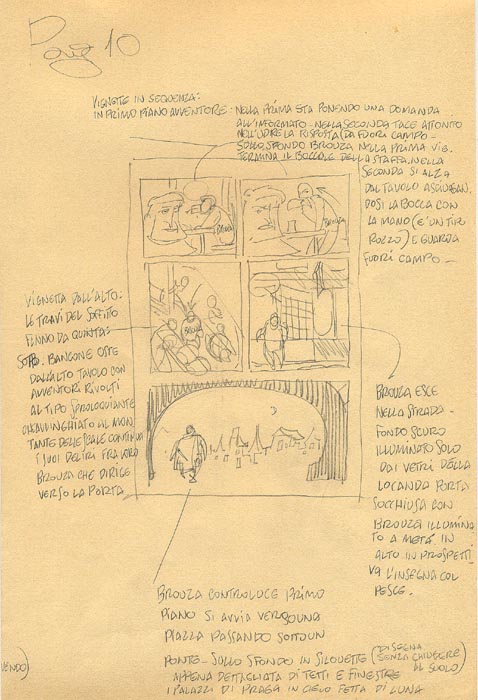 Pag 10
VIGNETTE IN SEQUENZA:
IN PRIMO PIANO AVVENTORE - NELLA PRIMA STA PONENDO UNA DOMANDA
ALL'INFORMATO - NELLA SECONDA TACE ATTONITO
NELL'UDIRE LA RISPOSTA (DA FUORI CAMPO -
SULLO SFONDO BROUZA NELLA PRIMA VIG.
TERMINA IL BOCCALE DELLA STAFFA. NELLA
SECONDA SI ALZA
DAL TAVOLO ASCIUGAN
DOSI LA BOCCA CON
LA MANO (E' UN TIPO
ROZZO) E GUARDA
FUORI CAMPO -
BROUZA
BROUZA
VIGNETTA DALL'ALTO.
LE TRAVI DEL SOFFITTO
FANNO DA QUINTA:
SOTTO BANCONE OSTE
DALL'ALTO TAVOLO CON
AVVENTORI RIVOLTI
AL TIPO SPROLOQUIANTE
AL MON
TANTE DELLE SCALE CONTINUA
I SUOI DELIRI FRA LORO
BROUZA CHE DIRIGE
VERSO LA PORTA
BROUZA ESCE
NELLA STRADA -
FONDO SCURO
ILLUMINATO SOLO
DAI VETRI DELLA
LOCANDA PORTA
SOCCHIUSA CON
BROUZA ILLUMINA
TO A METÀ IN
ALTO IN PROSPETTI
VA L'INSEGNA COL
PESCE.
BROUZA CONTROLUCE PRIMO
PIANO SI AVVIA VERSO UNA
PIAZZA PASSANDO SOTTO UN
PONTE - SULLO SFONDO IN SILOUETTE (DISEGNA
SENZA CHIUDERE
AL SUOLO)
APPENA DETTAGLIATA DI TETTI E FINESTRE
I PALAZZI DI PRAGA IN CIELO FETTA DI LUNA
VENDO)